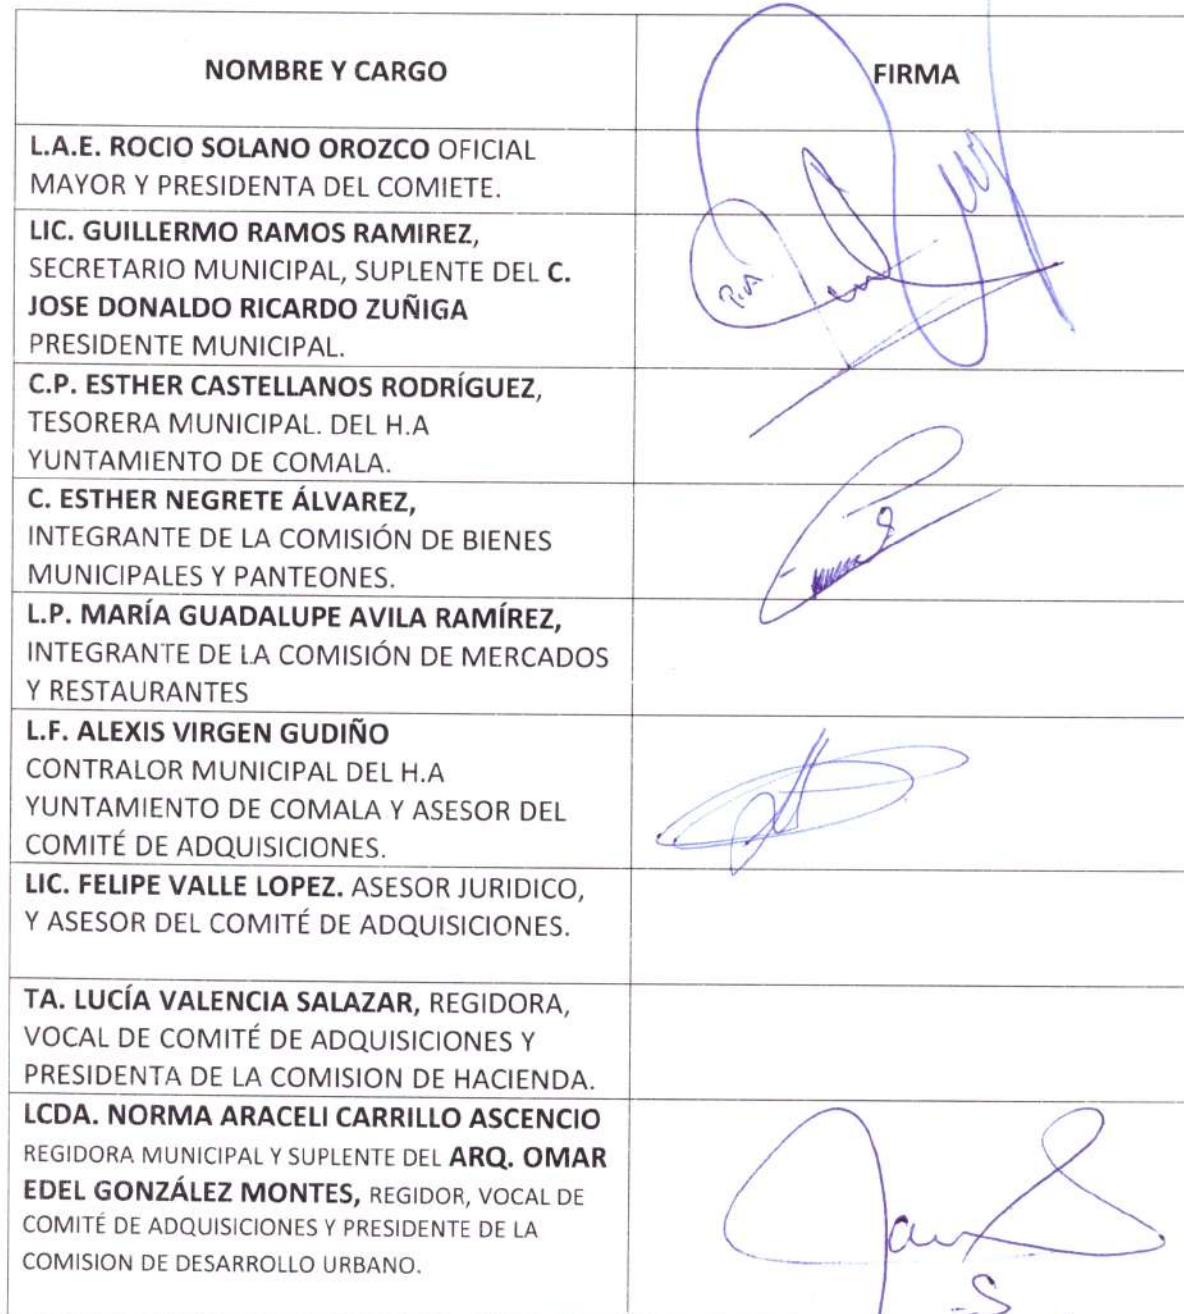 NOMBRE Y CARGO
FIRMA
L.A.E. ROCIO SOLANO OROZCO OFICIAL
MAYOR Y PRESIDENTA DEL COMIETE.
LIC. GUILLERMO RAMOS RAMIREZ,
SECRETARIO MUNICIPAL, SUPLENTE DEL C.
JOSE DONALDO RICARDO ZUÑIGA
PRESIDENTE MUNICIPAL.
C.P. ESTHER CASTELLANOS RODRÍGUEZ,
TESORERA MUNICIPAL. DEL H.A
YUNTAMIENTO DE COMALA.
C. ESTHER NEGRETE ÁLVAREZ,
INTEGRANTE DE LA COMISIÓN DE BIENES
MUNICIPALES Y PANTEONES.
L.P. MARÍA GUADALUPE AVILA RAMÍREZ,
INTEGRANTE DE LA COMISIÓN DE MERCADOS
Y RESTAURANTES
L.F. ALEXIS VIRGEN GUDIÑO
CONTRALOR MUNICIPAL DEL H.A
YUNTAMIENTO DE COMALA Y ASESOR DEL
COMITÉ DE ADQUISICIONES.
LIC. FELIPE VALLE LOPEZ. ASESOR JURIDICO,
Y ASESOR DEL COMITÉ DE ADQUISICIONES.
TA. LUCÍA VALENCIA SALAZAR, REGIDORA,
VOCAL DE COMITÉ DE ADQUISICIONES Y
PRESIDENTA DE LA COMISION DE HACIENDA.
LCDA. NORMA ARACELI CARRILLO ASCENCIO
REGIDORA MUNICIPAL Y SUPLENTE DEL ARQ. OMAR
EDEL GONZÁLEZ MONTES, REGIDOR, VOCAL DE
COMITÉ DE ADQUISICIONES Y PRESIDENTE DE LA
COMISION DE DESARROLLO URBANO.